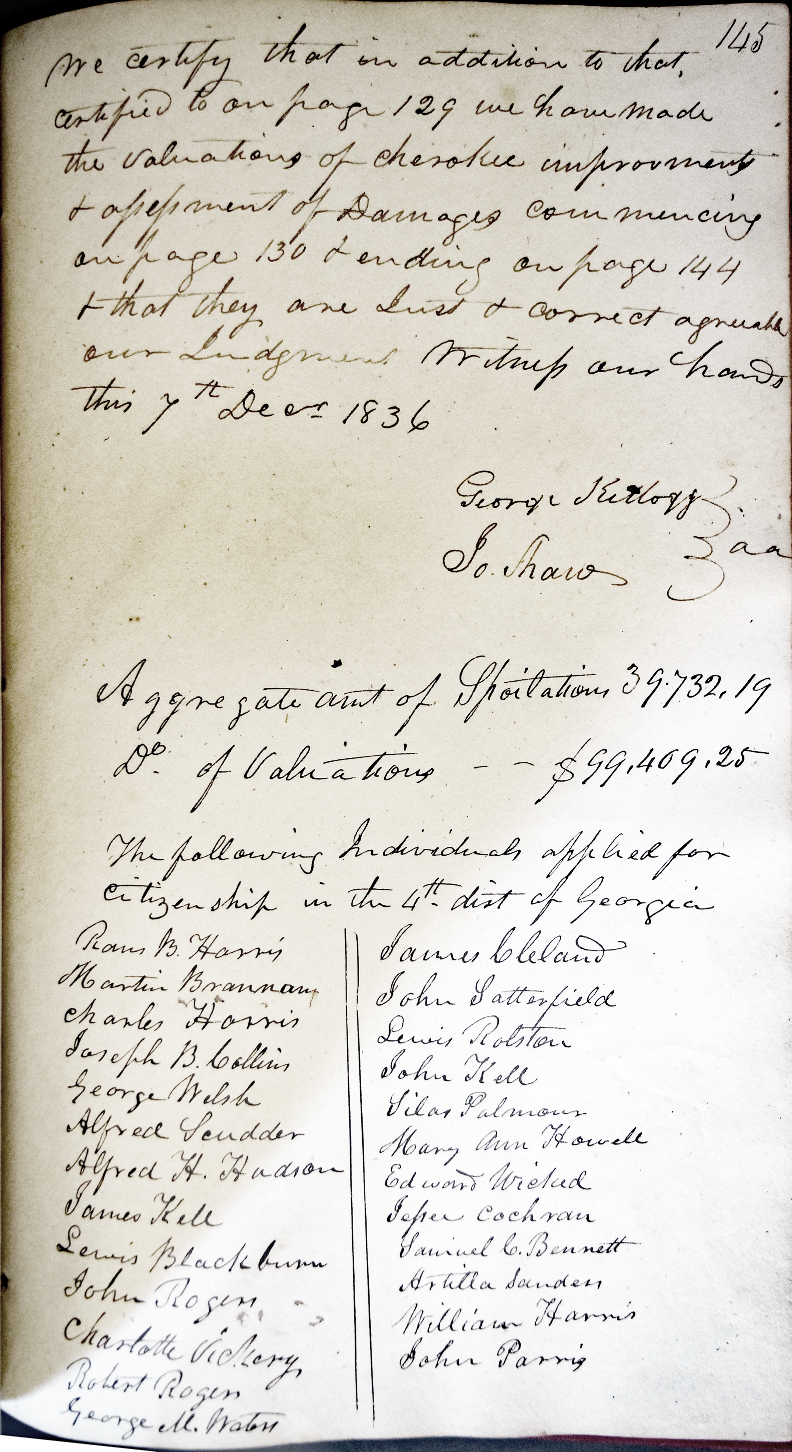 145
We certify that in addition to that,
certified to on page 129 we have made
the valuations of cherokee improvments
& assessment of Damages commencing
on page 130 & ending on page 144
& that they are Just & correct agreeable
our Judgment Witness our hands
this 7th Decr 1836
George Kellogg
Jo. Shaw
Aggregate amt of Spoilations 39.732.19
Do. of Valuations - - $99.409.25
The following Individuals applied for
citizenship in the 4th dist of Georgia
B. Harris
Martin Brannam
Charles Harris
Joseph B. Collins
George Welsh
Alfred Scudder
Alfred H. Hudson
James Kell
Lewis Blackburn
John Rogers
Charlotte Vickery
Robert Rogers
George M. Waters
James Cleland
John Satterfield
Lewis Rolston
John Kell
Silas Palmour
Mary Ann Howell
Edward Wicked
Jesse Cochran
Samuel C. Bennett
Artilla Sanders
William Harris
John Parris